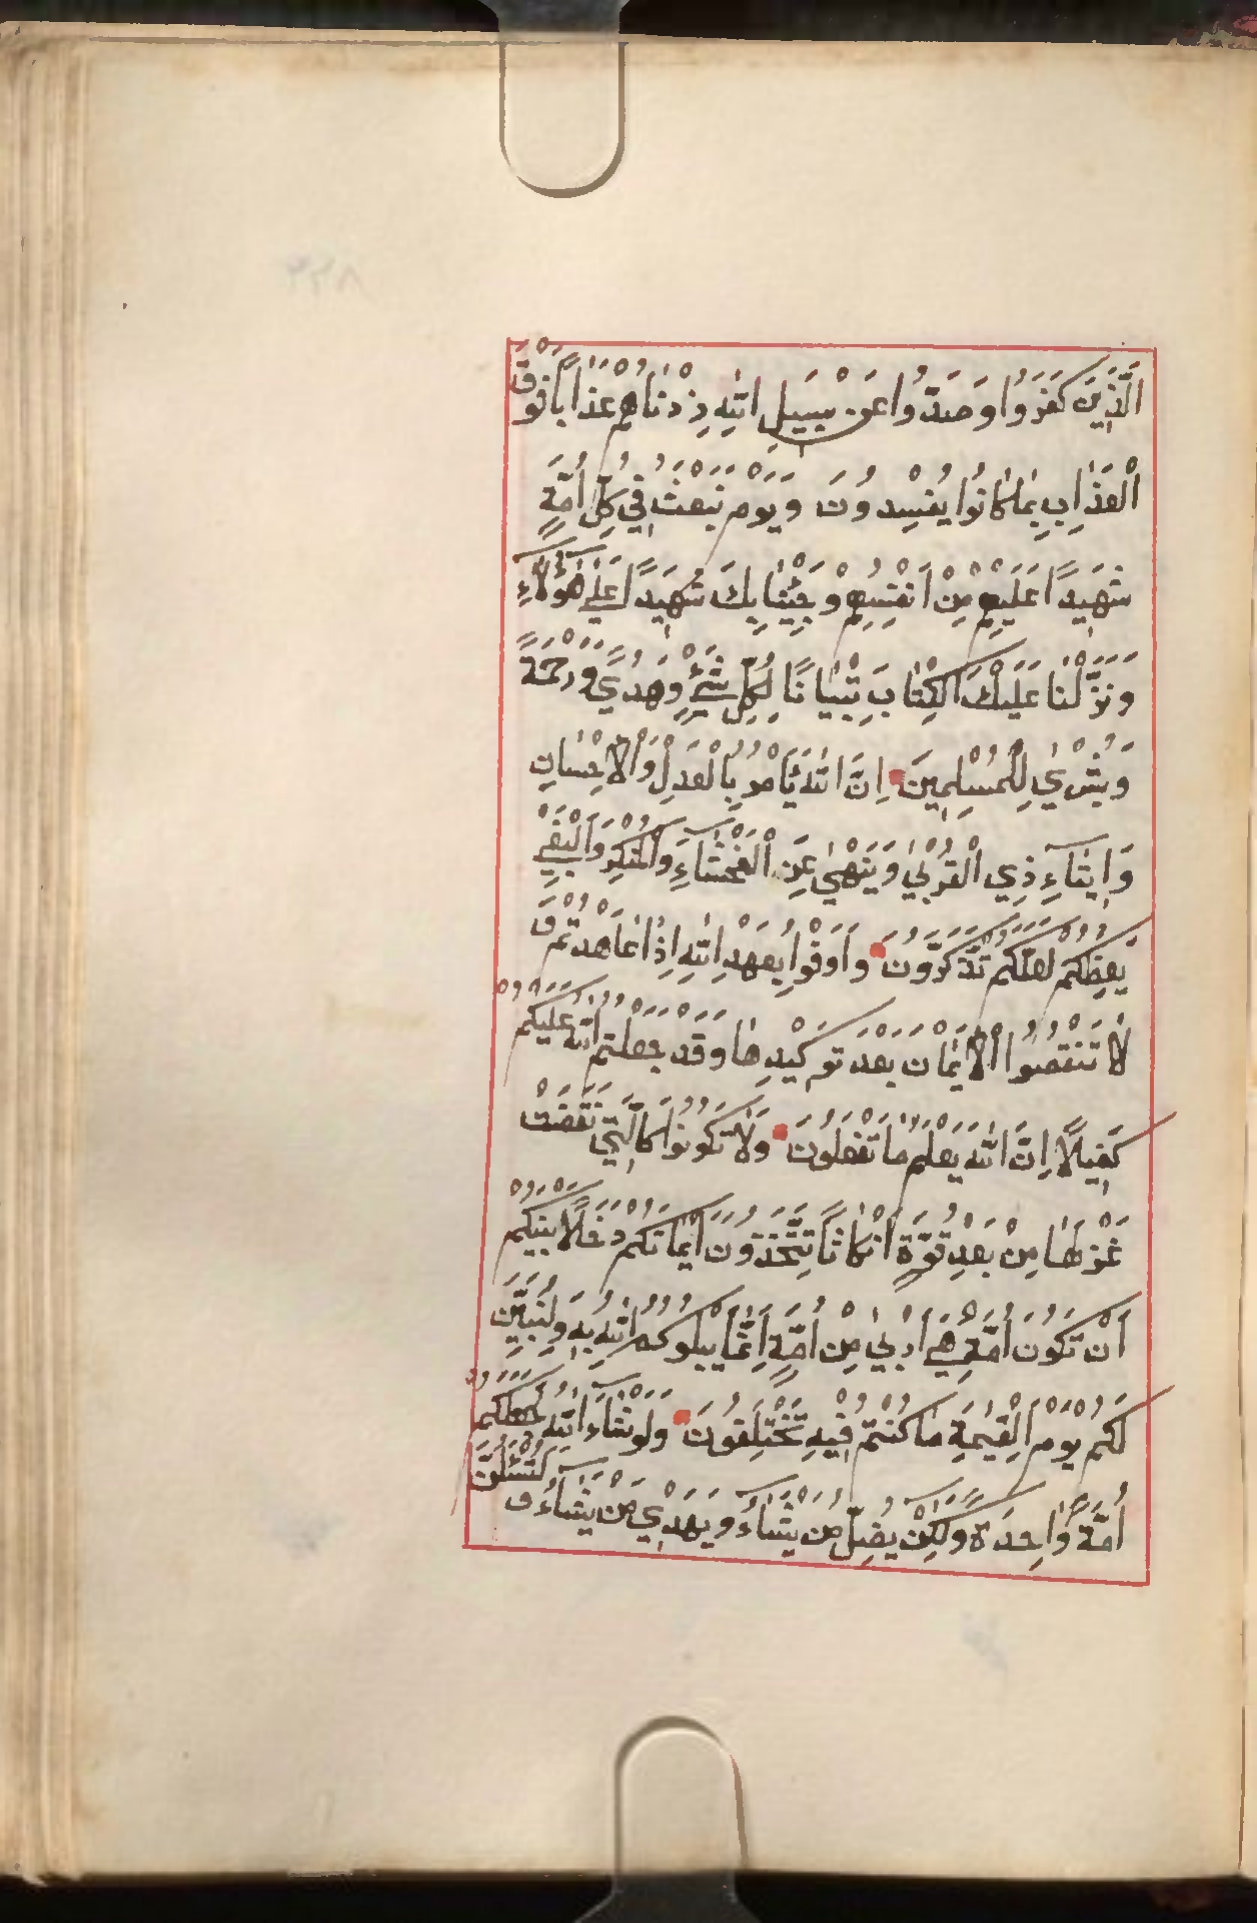 اَلَّذِينَ كَفَرُوا وَصَدُّوا عَنْ سَبِيلِ اللّٰهِ زِدْنَاهُمْ عَذَابًا فَوْقَ
الْعَذَابِ بِمَا كَانُوا يُفْسِدُونَ وَيَوْمَ نَبْعَثُ فِي كُلِّ أُمَّةٍ
شَهِيدًا عَلَيْهِمْ مِنْ اَنْفُسِهِمْ وَجِئْنَا بِكَ شَهِيدًا عَلٰى هٰؤُلَآءِ
وَنَزَّلْنَا عَلَيْكَ الْكِتَابَ تِبْيَانًا لِكُلِّ شَيْءٍ وَهُدًى وَرَحْمَةً
وَبُشْرٰى لِلْمُسْلِمِينَ اِنَّ اللّٰهَ يَأْمُرُ بِالْعَدْلِ وَالْاِحْسَانِ
وَاِيتَآءِ ذِي الْقُرْبٰى وَيَنْهٰى عَنِ الْفَحْشَآءِ وَالْمُنْكَرِ وَالْبَغْيِ
يَعِظُكُمْ لَعَلَّكُمْ تَذَكَّرُونَ وَاَوْفُوا بِعَهْدِ اللّٰهِ اِذَا عَاهَدْتُمْ وَ
لَا تَنْقُضُوا الْاَيْمَانَ بَعْدَ تَوْكِيدِهَا وَقَدْ جَعَلْتُمُ اللّٰهَ عَلَيْكُمْ
كَفِيلًا اِنَّ اللّٰهَ يَعْلَمُ مَا تَفْعَلُونَ وَلَا تَكُونُوا كَالَّتِي نَقَضَتْ
غَزْلَهَا مِنْ بَعْدِ قُوَّةٍ اَنْكَاثًا تَتَّخِذُونَ اَيْمَانَكُمْ دَخَلًا بَيْنَكُمْ
اَنْ تَكُونَ اُمَّةٌ هِيَ اَرْبٰى مِنْ اُمَّةٍ اِنَّمَا يَبْلُوكُمُ اللّٰهُ بِهِ وَلَيُبَيِّنَنَّ
لَكُمْ يَوْمَ الْقِيٰمَةِ مَا كُنْتُمْ فِيهِ تَخْتَلِفُونَ وَلَوْ شَآءَ اللّٰهُ لَجَعَلَكُمْ
اُمَّةً وَاحِدَةً وَلٰكِنْ يُضِلُّ مَنْ يَشَآءُ وَيَهْدِي مَنْ يَشَآءُ وَ لَتُسْئَلُنَّ